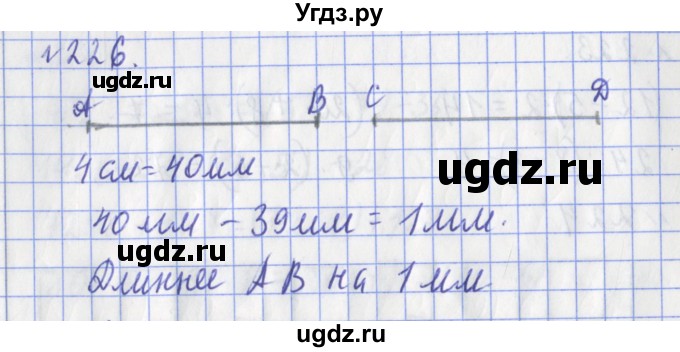 Угдз.ру
№226.
ugdz.ru
A B C D
ugdz.ru
4 см = 40 мм
ugdz.ru
40 мм - 39 мм = 1 мм.
ugdz.ru
Длиннее AB на 1 мм
ugdz.ru
Угдз.ру